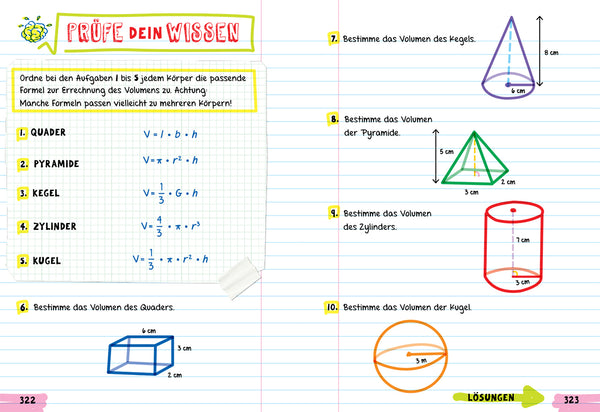 PRÜFE DEIN WISSEN
Ordne bei den Aufgaben 1 bis 5 jedem Körper die passende
Formel zur Errechnung des Volumens zu. Achtung:
Manche Formeln passen vielleicht zu mehreren Körpern!
1. QUADER
V = l · b · h
2. PYRAMIDE
V = π · r² · h
3. KEGEL
V = 1/3 · G · h
4. ZYLINDER
V = 4/3 · π · r³
5. KUGEL
V = 1/3 · π · r² · h
6. Bestimme das Volumen des Quaders.
6 cm
3 cm
2 cm
322
7. Bestimme das Volumen des Kegels.
8 cm
6 cm
8. Bestimme das Volumen
der Pyramide.
5 cm
2 cm
3 cm
9. Bestimme das Volumen
des Zylinders.
7 cm
3 cm
10. Bestimme das Volumen der Kugel.
3 m
LÖSUNGEN
323